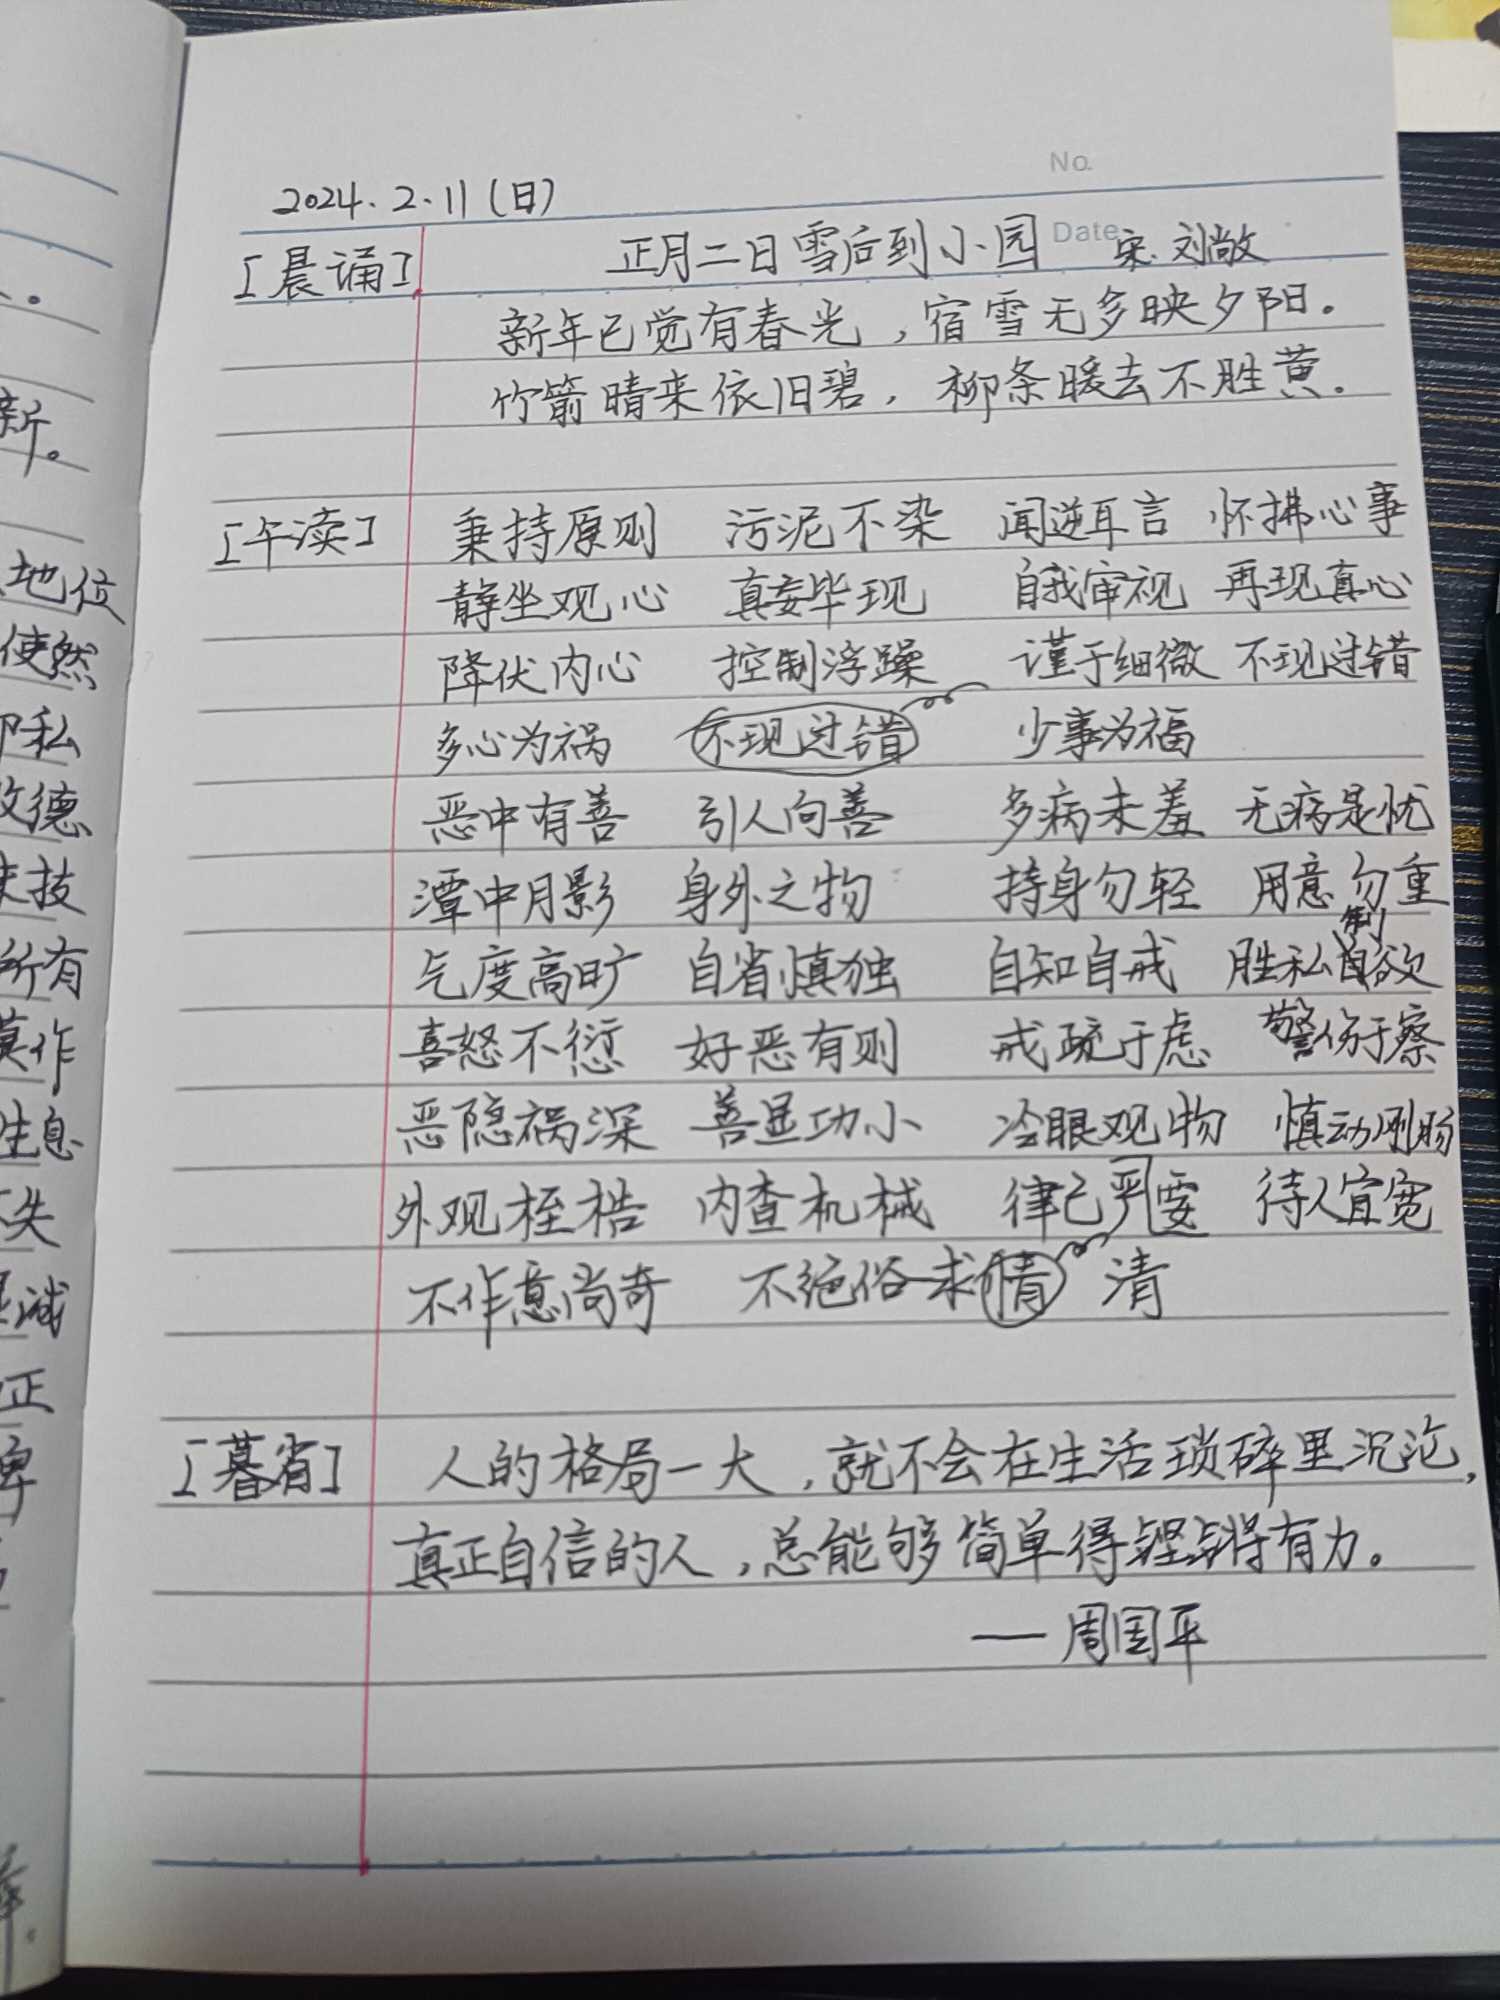 No.
2024.2.11(日)
Date
[晨诵] 正月二日雪后到小园 宋.刘尚攵
新年已觉有春光,宿雪无多映夕阳。
竹箭晴来依旧碧,柳条暖去不胜黄.
[午读] 秉持原则 污泥不染 闻逆耳言 怀拂心事
静坐观心 真妄毕现 自我审视 再现真心
降伏内心 控制浮躁 谨于细微 不现过错
多心为祸 不现过错 少事为福
恶中有善 引人向善 多病未羞 无病是忧
潭中月影 身外之物 持身勿轻 用意勿重
气度高旷 自省慎独 自知自戒 胜私制欲
喜怒不愆 好恶有则 戒疏于虑 警伤于察
恶隐祸深 善显功小 冷眼观物 慎动刚肠
外观桎梏 内查机械 律己严要 待人宜宽
不作意尚奇 不绝俗求情 清
[暮省] 人的格局一大,就不会在生活琐碎里沉沦,
真正自信的人,总能够简单得铿锵有力。
—周国平
新。
地位
使然
私
德
技
所有
莫作
生息
失
减
正